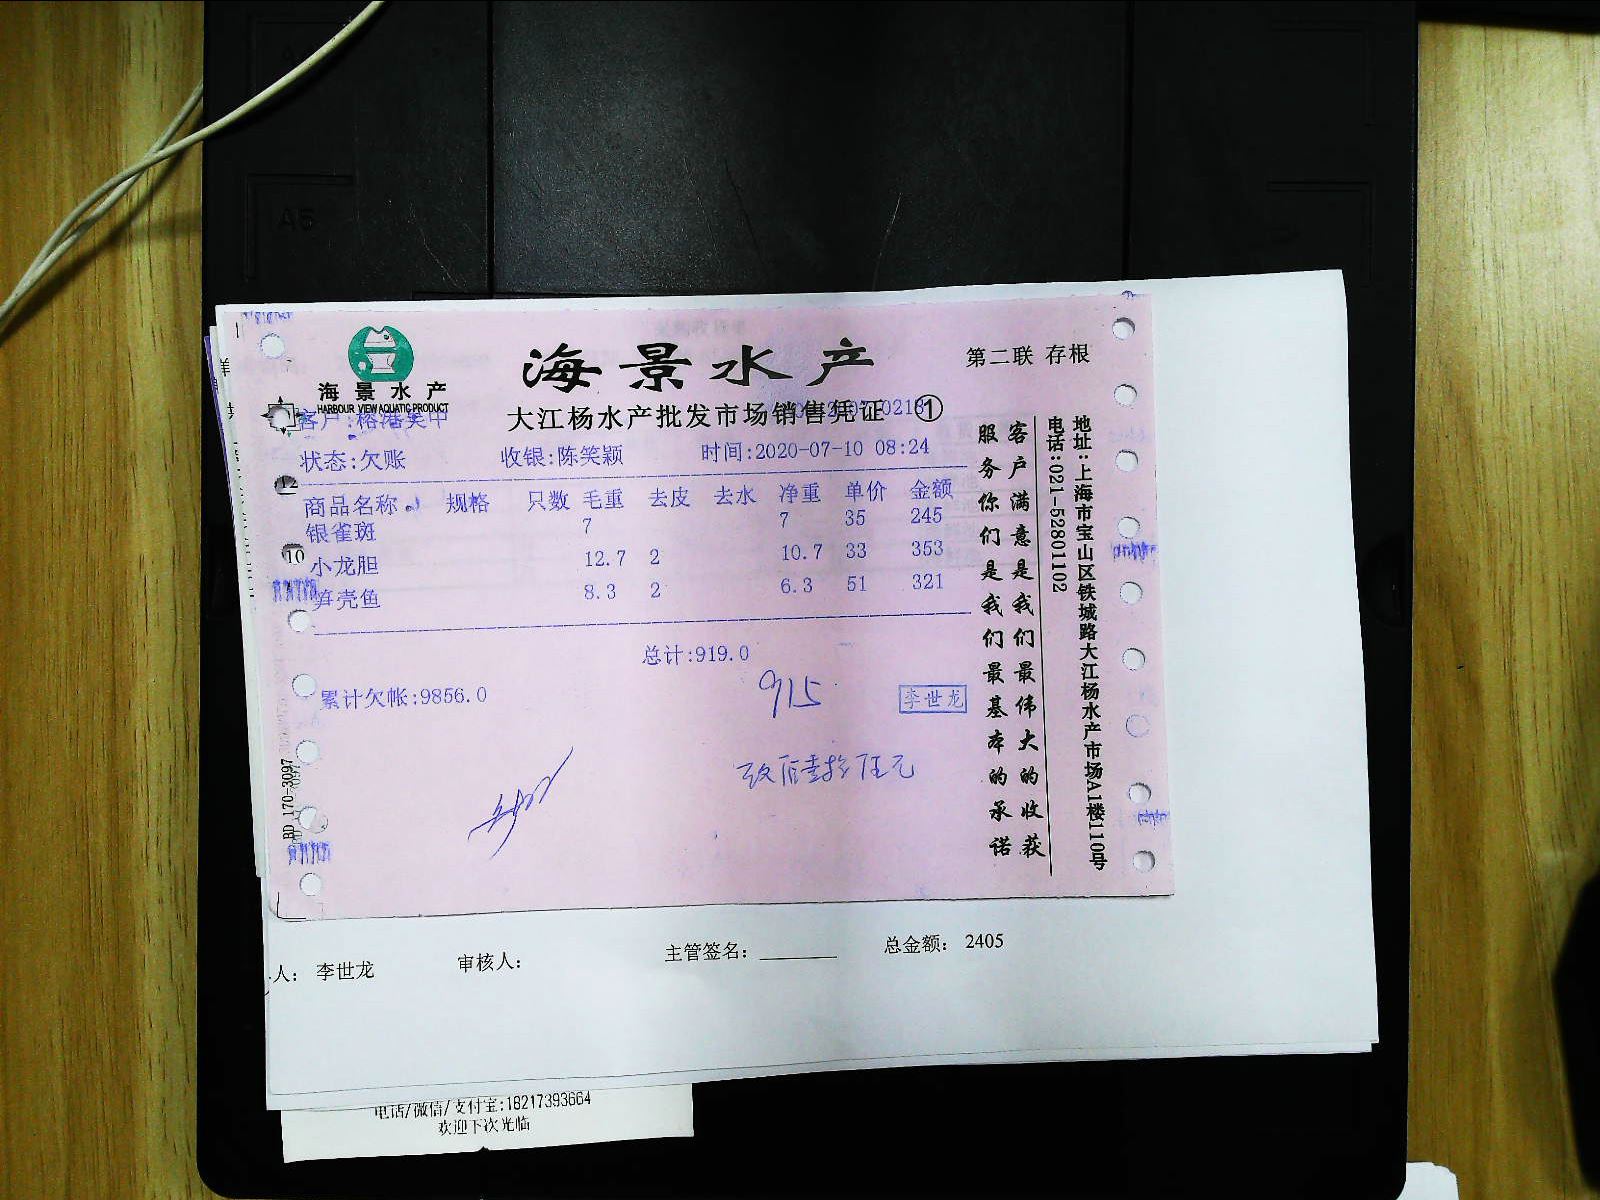 海景水产
HARBOUR VIEW AQUATIC PRODUCT
海景水产
第二联 存根
大江杨水产批发市场销售凭证 ①
客户:榕港吴中
状态:欠账 收银:陈笑颖 时间:2020-07-10 08:24
商品名称 规格 只数 毛重 去皮 去水 净重 单价 金额
银雀斑 7 7 35 245
小龙胆 12.7 2 10.7 33 353
笋壳鱼 8.3 2 6.3 51 321
总计:919.0
累计欠帐:9856.0
915
李世龙
客户满意是我们最伟大的收获
服务你们是我们最基本的承诺
地址:上海市宝山区铁城路大江杨水产市场A1楼110号
电话:021-52801102
12
10
BD 170-3097
人: 李世龙 审核人: 主管签名: 总金额: 2405
电话/微信/支付宝:18217393664
欢迎下次光临
A5